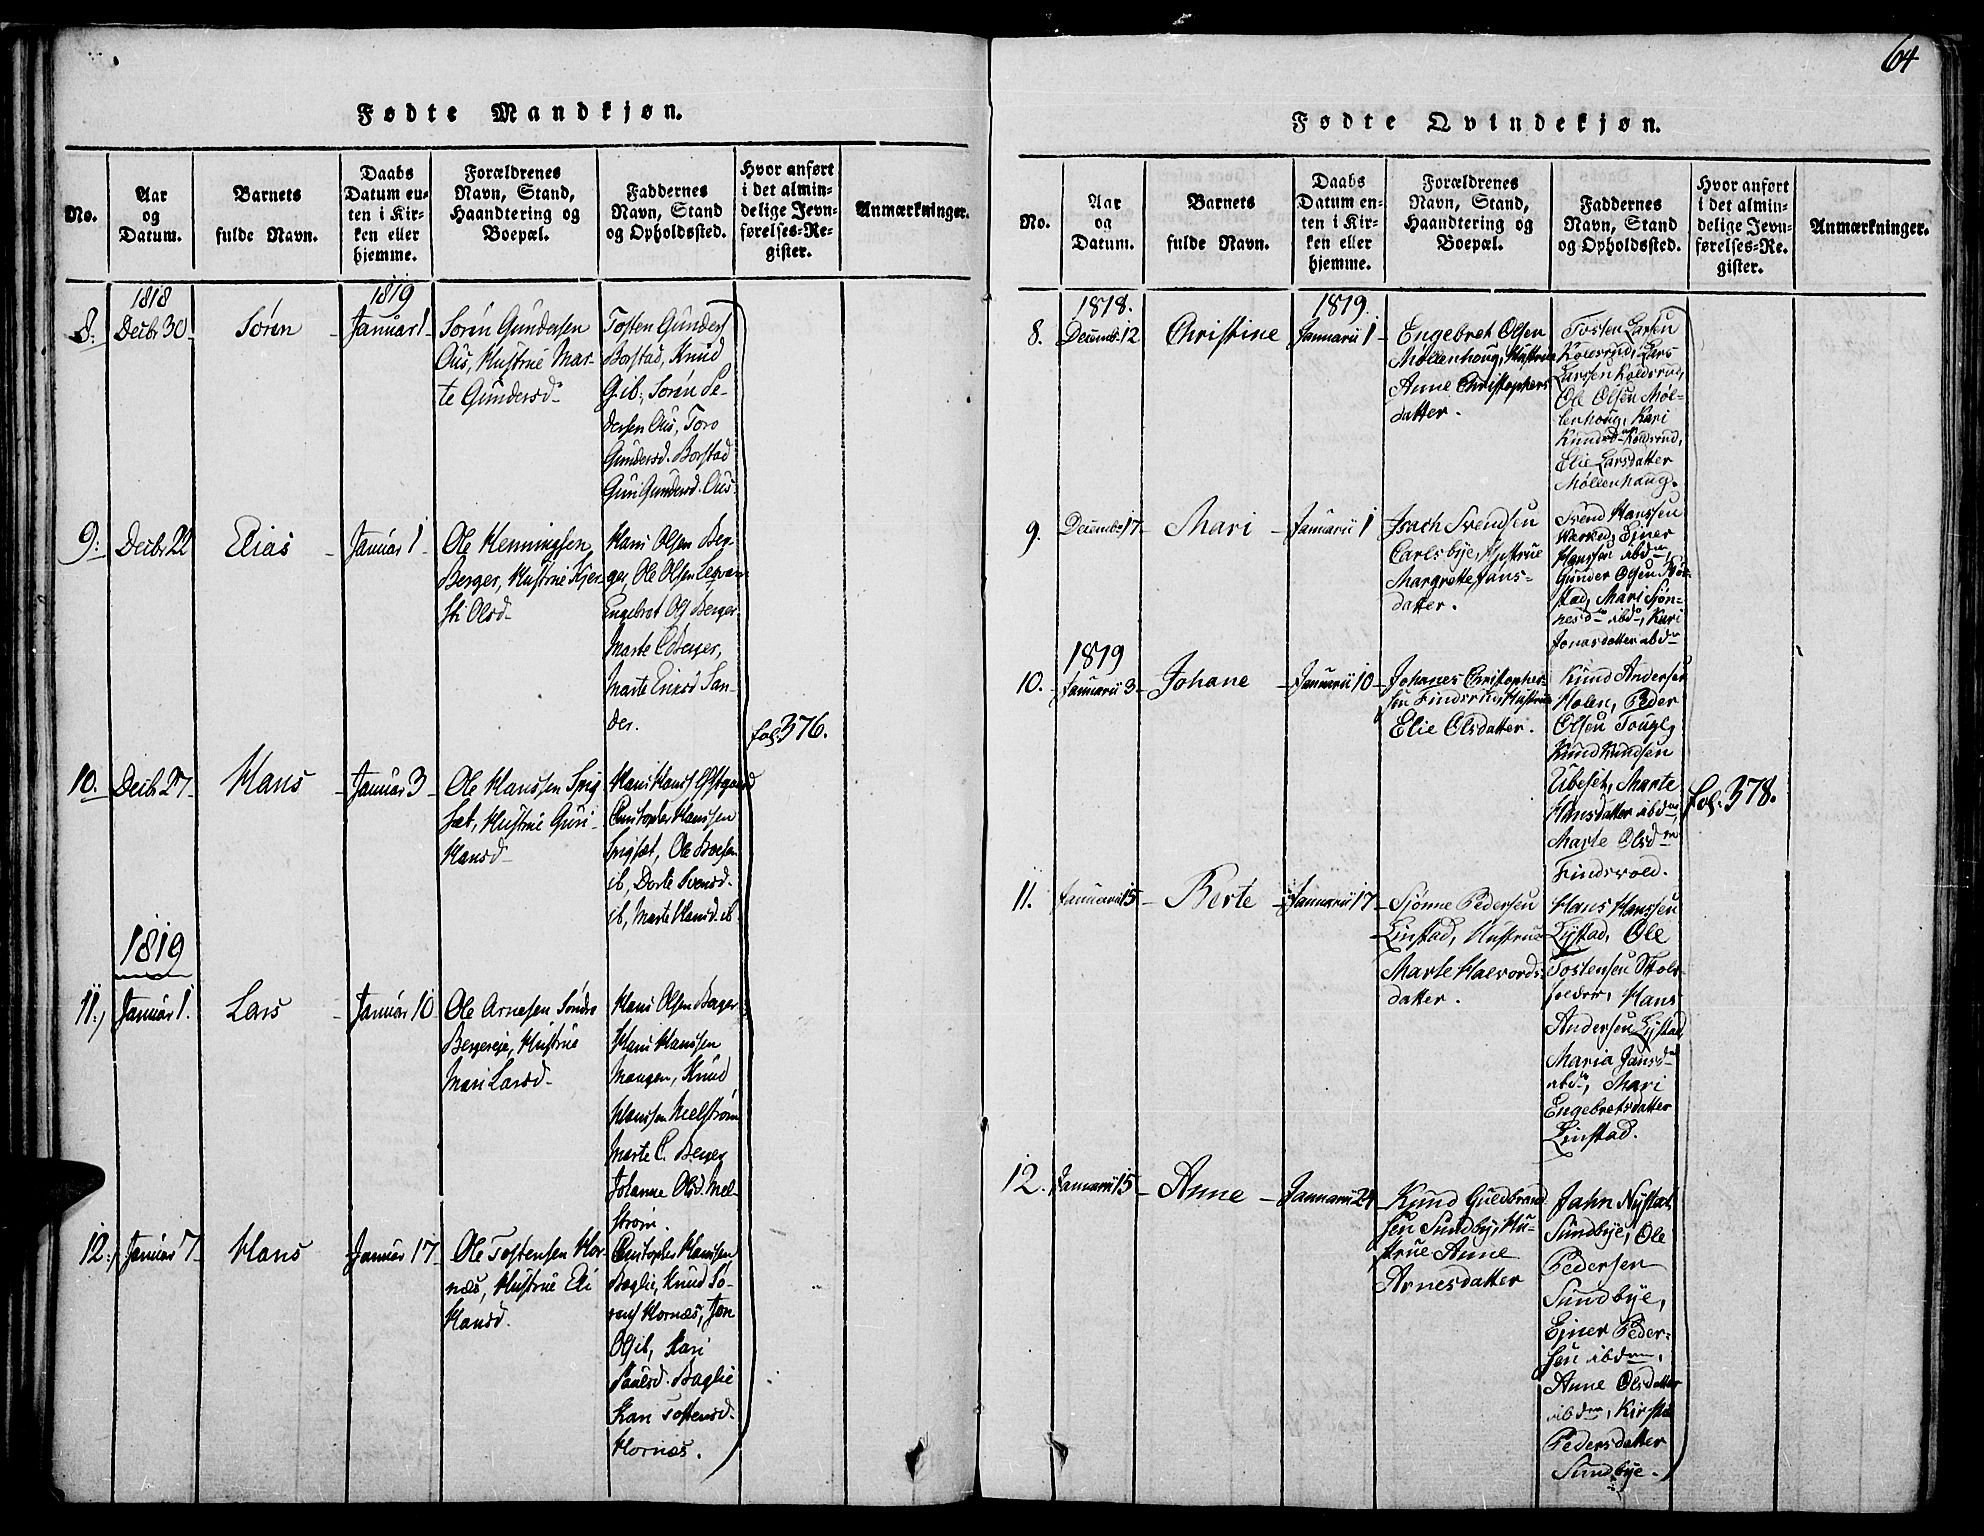 64
Fødte Mandkjøn.
No.
Aar
og
Datum.
Barnets
fulde Navn.
Daabs
Datum en-
ten i Kir-
ken eller
hjemme.
Forældrenes
Navn, Stand,
Haandtering og
Boepæl.
Faddernes
Navn, Stand
og Opholdssted.
Hvor anført
i det almin-
delige Jevn-
førelses-Re-
gister.
Anmærkninger.
8.
1818
Decbr 30
Søren
1819
Januar 1
Sørén Gundersen
Ous, Hustrue Mar-
te Gundersd
Tosten Gunders
Borstad, Knud
G ib, Søren Pe-
dersen Ous, Toro
Gundersd. Borstad
Guri Gundersd. Ous
9.
Decbr 22
Elias
Januar 1
Ole Henningsen
Berger, Hustrue Kjer-
sti Olsd
Hans Olsen Ber-
ger, Ole Olsen
Engebret Ols Berger
Marte C Berger,
Marte Ericsd San-
der.
fol. 376.
10.
Decbr 27
Hans
Januar 3
Ole Hanssen Spig-
sæt, Hustrue Guri
Hansd
Hans Hanss
Christopher Hanssen
Spigset, Ole
ib, Dorte Svensd.
ib, Marte Hansd. ib
1819
11.
Januar 1.
Lars
Januar 10
Ole Arnesen Søndre
Bergereje, Hustrue
Mari Larsd
Hans Olsen Berger
Hans Hanssen
Mangen, Knud
Hanssen Melstrøm
Marte C. Berger
Johanne Olsd. Mel-
strøm.
12.
Januar 7
Hans
Januar 17
Ole Tostensen Hor-
næs, Hustrue Eli
Hansd.
Christopher Hanssen
Baglie, Knud Sø-
rens Hornæs, Jon
Ols ib, Kari
Paulsd. Baglie
Kari Tostensd.
Hornæs.
Fødte Qvindekjøn.
No.
Aar
og
Datum.
Barnets
fulde Navn.
Daabs
Datum en-
ten i Kir-
ken eller
hjemme.
Forældrenes
Navn, Stand,
Haandtering og
Boepæl.
Faddernes
Navn, Stand
og Opholdssted.
Hvor anført
i det almin-
delige Jevn-
førelses-Re-
gister.
Anmærkninger.
8.
1818.
Decemb. 12
Christine
1819.
Januarii 1
Engebret Olsen
Møllenhoug, Hustrue
Anne Christophers
datter.
Tosten Larsen
Kolsrud, Lars
Larsen Koldsrud,
Ole Olsen Møl-
lenhoug, Kari
Knudsd Koldsrud,
Elie Larsdatter
Møllenhaug.
9.
Decemb. 17
Mari
Januarii 1
Isach Svendsen
Carlsbye, Hustrue
Margrette Jans-
datter.
Svend Hanssen
Ejner
Hanssen ibdm,
Gunder Olsen
stad, Mari
ibdm, Kari
Jonasdatter ibdm
1819
10.
Januarii 3
Johane
Januarii 10
Johanes Christopher-
sen Hustrue
Elie Olsdatter.
Knud Andersen
Holen, Peder
Olsen
Knud Knudsen
Ubeset, Marte
Hansdatter ibdm,
Marte Olsd
Findsvold.
fol. 378.
11.
Januarii 15
Berte
Januarii 17
Sjønne Pedersen
Linstad, Hustrue
Marte Halvords-
datter.
Hans Hanssen
Lystad, Ole
Tostensen
Hans
Andersen Lystad
Maria Jansd
ibdm, Mari
Engebretsdatter
Linstad.
12.
Januarii 15
Anne
Januarii 24
Knud Guldbrand
sen Sundby, Hu-
strue Anne
Arnesdatter
Jahn Nystad
Sundbye, Ole
Pedersen
Sundbye,
Ejner Peder-
sen ibdm,
Anne Olsdatter
ibdm, Kirsti
Pedersdatter
Sundbye.